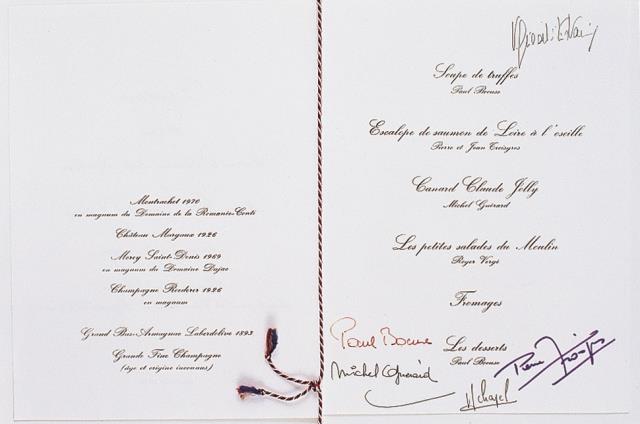 Montrachet 1970
en magnum du Domaine de la Romanée-Conti
Château Margaux 1926
Morey Saint-Denis 1969
en magnum du Domaine Dujac
Champagne Rœderer 1926
en magnum
Grand Bas-Armagnac Laberdolive 1893
Grande Fine Champagne
(âge et origine inconnus)
Soupe de truffes
Paul Bocuse
Escalope de saumon de Loire à l'oseille
Pierre et Jean Troisgros
Canard Claude Jolly
Michel Guérard
Les petites salades du Moulin
Roger Vergé
Fromages
Les desserts
Paul Bocuse
Paul Bocuse
Michel Guérard
Pierre Troisgros